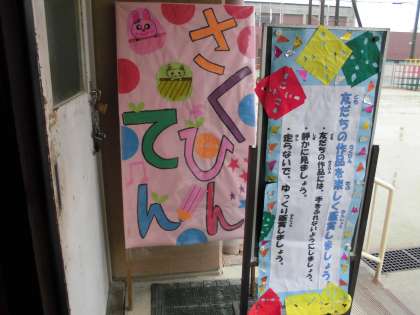 さくひん
てん
友だちの作品を楽しく鑑賞しましょう。
・友だちの作品には、手をふれないようにしましょう。
・静かに見ましょう。
・走らないで、ゆっくり鑑賞しましょう。